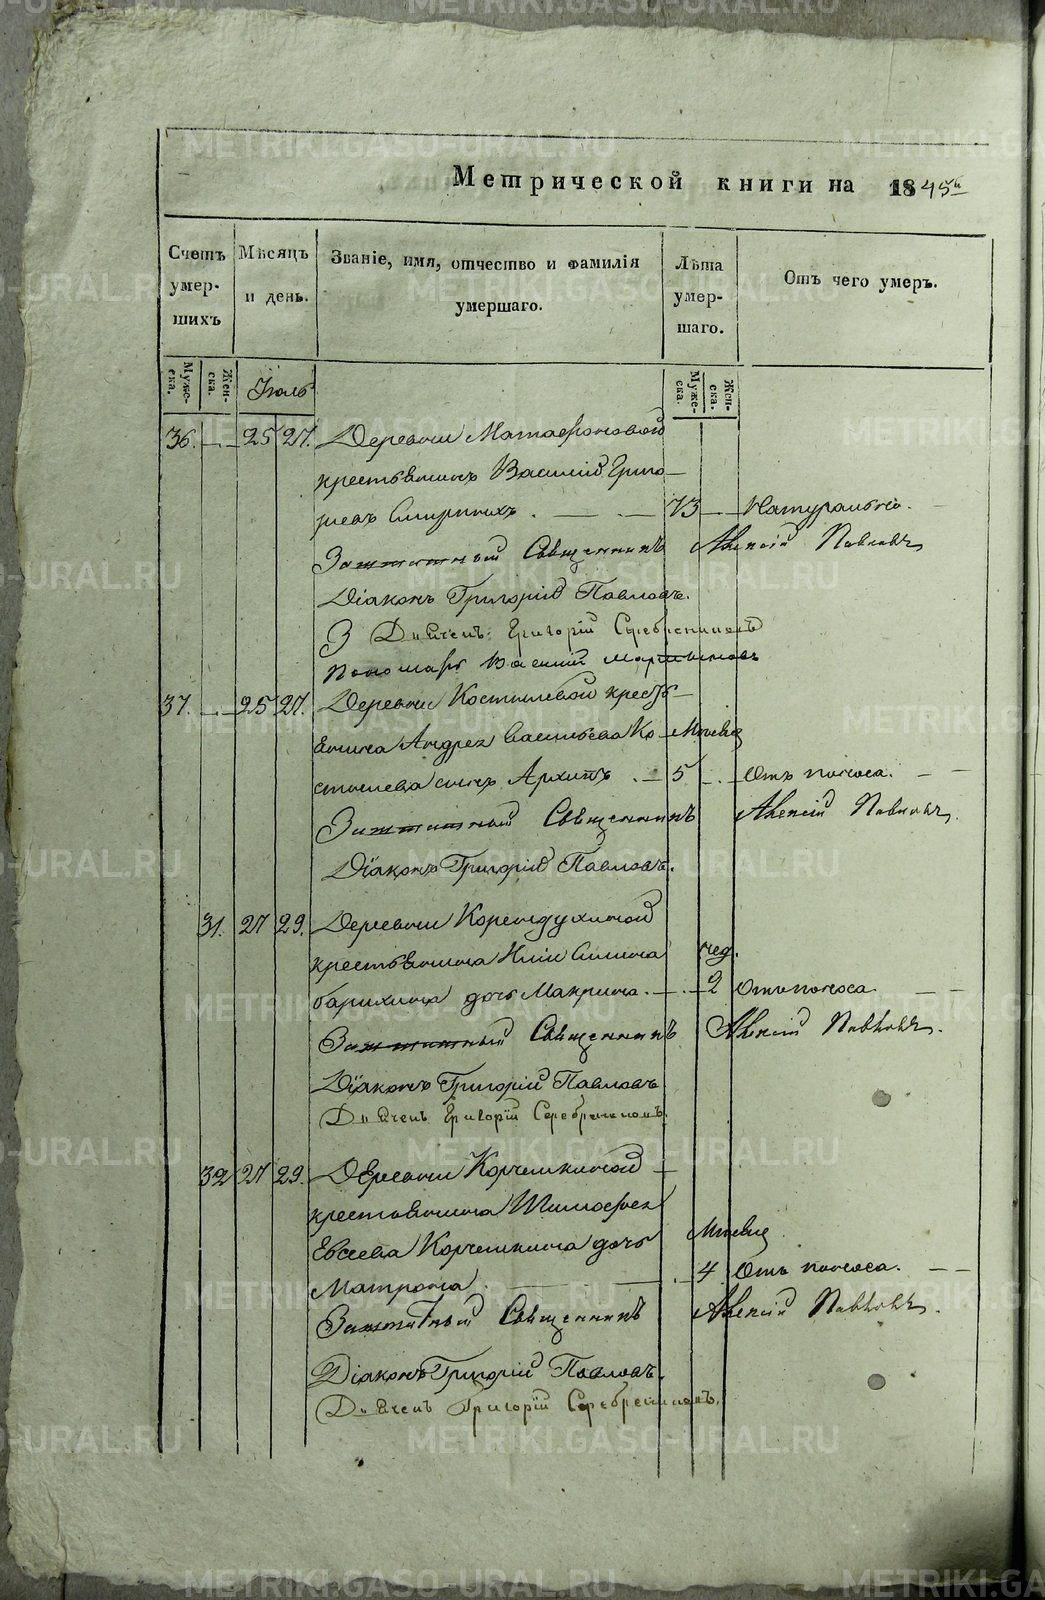 Метрической книги на 1845й
Счетъ умер- шихъ
Мѣсяцъ и день.
Званіе, имя, отчество и фамилія умершаго.
Лѣта умер- шаго.
Отъ чего умеръ.
Муже- ска.
Жен- ска.
Іюль
Муже- ска.
Жен- ска.
36. 25 27. Деревни Матафоновой
крестьянинъ Василій Григо-
рьевъ Смирныхъ 73 Натурально.
Священникъ Алексій Павловъ
Діаконъ Григорій Павловъ.
Дьячекъ Григорій Серебренниковъ
Пономарь Василій Мартыновъ
37. 25 27. Деревни Костылевой кресть-
янина Андрея Васильева Ко- Месяц
стылева сынъ Архипъ 5 Отъ поноса.
Священникъ Алексій Павловъ.
Діаконъ Григорій Павловъ.
31. 27 29. Деревни
крестьянина нед.
дочь Макрина. 2 Отъ поноса.
Священникъ Алексій Павловъ.
Діаконъ Григорій Павловъ
Дьячекъ Григорій Серебренниковъ.
32 27 29. Деревни Корчемкиной
крестьянина Тимофея
Евсеева Корчемкина дочь Месяц
Матрона. 4. Отъ поноса.
Священникъ Алексій Павловъ.
Діаконъ Григорій Павловъ.
Дьячекъ Григорій Серебренниковъ.
METRIKI.GASO-URAL.RU